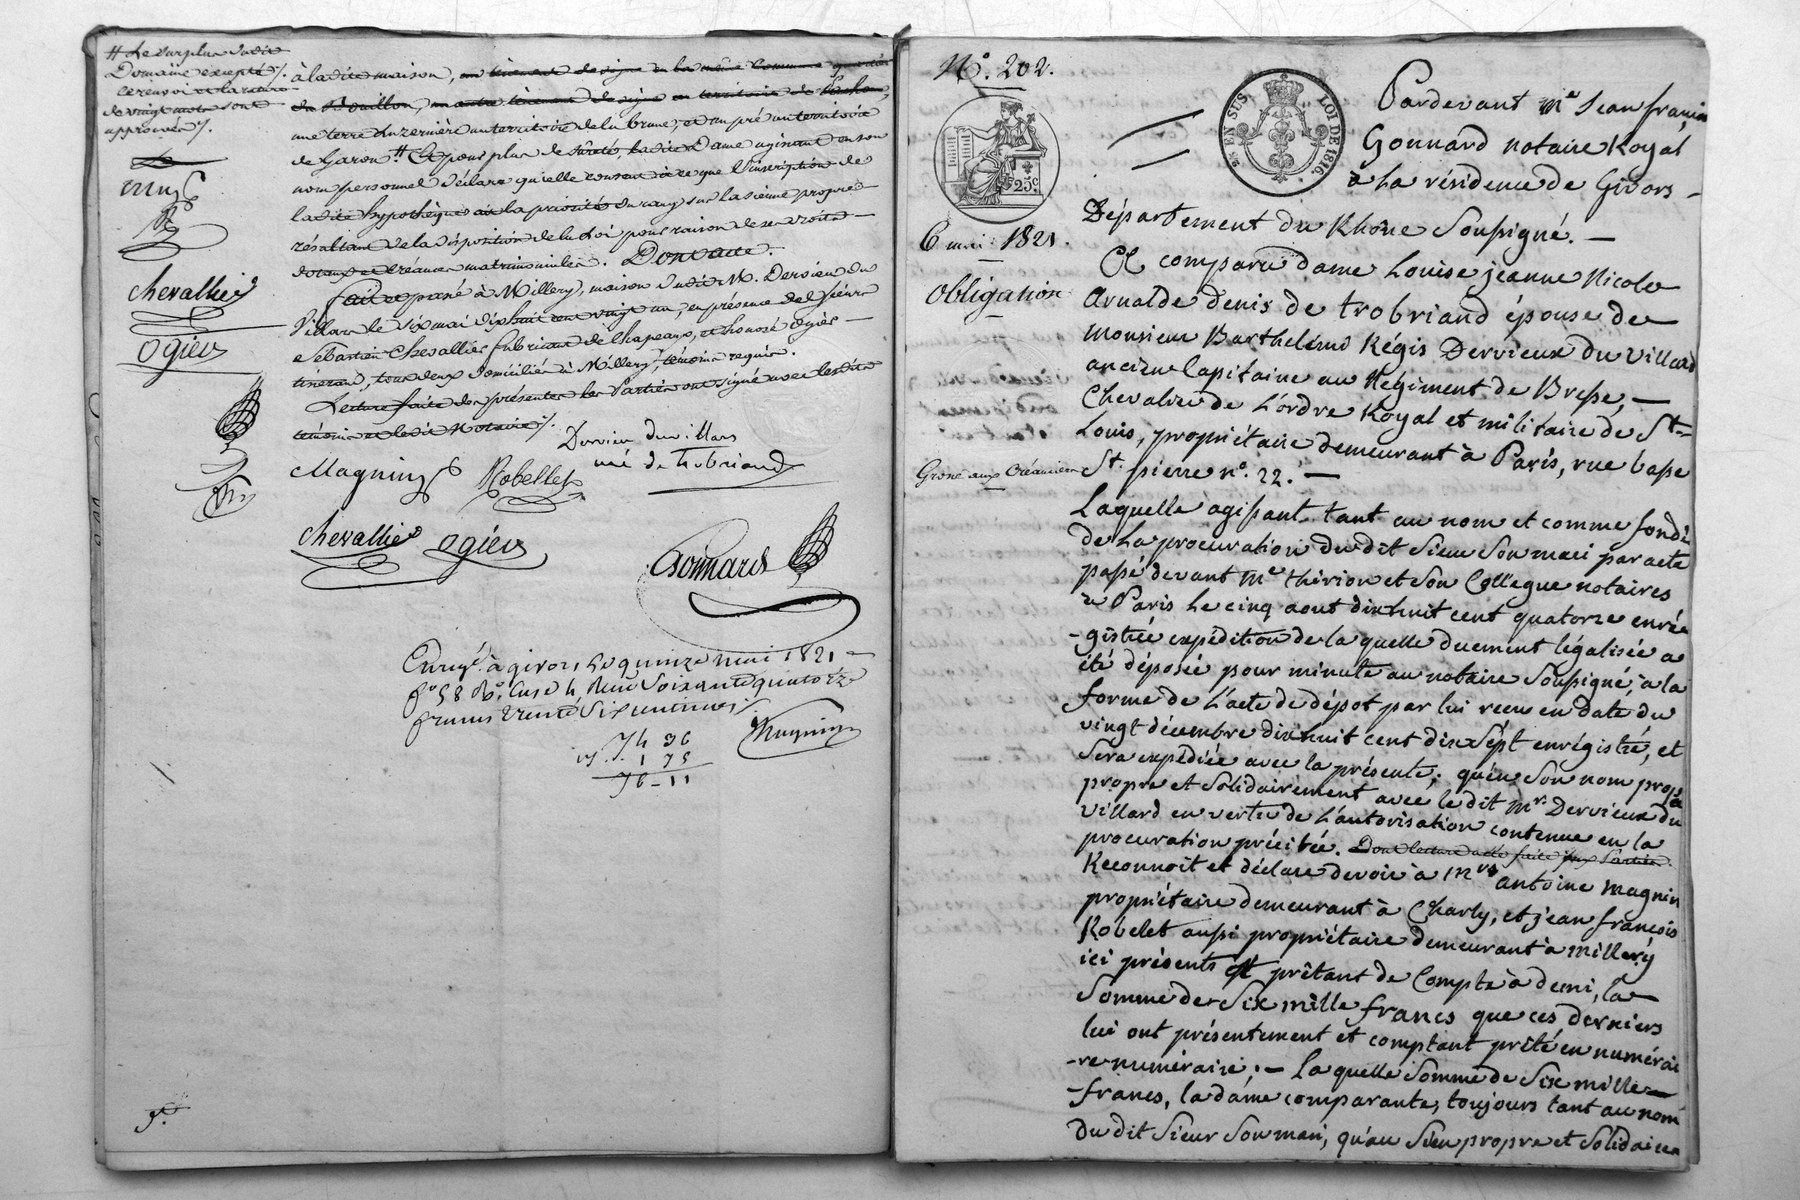 # Le surplus dudit
Domaine excepté /.
ce renvoi et la rature
de vingt mots sont
approuvés /.
chevallier
Ogier
à ladite maison, un tènement de vigne en la même Commune quartier
du Bouillon, un autre tènement de vigne au territoire de
une terre luzernière au territoire de la brune, et un pré au territoire
de Garon # Et pour plus de sûreté, ladite Dame agissant en son
nom personnel déclare qu'elle consent à ce que l'inscription de
ladite hypothèque ait la priorité du rang sur la sienne propre
résultant de la disposition de la Loi pour raison de ses droits
dotaux et Créances matrimoniales. Dont acte.
Fait et passé à Millery, maison dudit M. Dervieu du
Villars le six mai dix huit cent vingt un, en présence des sieurs
Sébastien Chevallier fabricant de chapeaux, et honoré ogier
, tous deux domiciliés à Millery, témoins requis.
Lecture faite des présentes les Parties ont signé avec lesdits
témoins et ledit Notaire /.
Dervieu du villars
née de Trobriand
Magnin Robellet
chevallier Ogier
Gonnard
Enregé. à givors, le quinze mai 1821
fo 58 Vo. Case 4, Reçu Soixante quatorze
francs trente Six centimes /.
Magnin
74 36
1 75
76 - 11
No. 202.
E. EN SUS
LOI DE 1816.
25c
6 mai 1821.
Obligation
Grosse aux Créanciers
Pardevant Me. Jean françois
Gonnard notaire Royal
à la résidence de Givors -
Département du Rhône Soussigné. —
Est comparu dame Louise jeanne Nicole
Arnalde denis de trobriand épouse de
Monsieur Barthelemi Régis Dervieux du Villard
ancien Capitaine au Régiment de Bresse, —
Chevalier de L'ordre Royal et militaire de St.
Louis, propriétaire demeurant à Paris, rue basse
St. pierre no. 22. —
Laquelle agissant tant au nom et comme fondé
de la procuration du dit Sieur Son mari par acte
passé devant Me. thirion et son Collegue notaires
à Paris le cinq aout dix huit cent quatorze enré
-gistrée expédition de la quelle duement légalisée a
été déposée pour minute au notaire Soussigné, à la
forme de L'acte de dépot par lui reçu en date du
vingt décembre dix huit cent dix Sept enrégistré, et
Sera expédiée avec la présente; qu'en Son nom propre
propre et Solidairement avec le dit Mr. Dervieux du
Villard en vertu de L'autorisation contenue en la
procuration précitée. Dont lecture a été faite aux Parties.
Reconnoit et déclare devoir à Mrs antoine Magnin
propriétaire demeurant à Charly, et jean françois
Robelet aussi propriétaire demeurant à Millery
ici présents et prêtant de Compte à demi, la
Somme de Six mille francs que ces derniers
lui ont présentement et comptant prêté en numérai
-re numéraire; — La quelle Somme de Six mille —
-francs, la dame comparante, toujours tant au nom
du dit Sieur Son mari, qu'au Sien propre et Solidaire